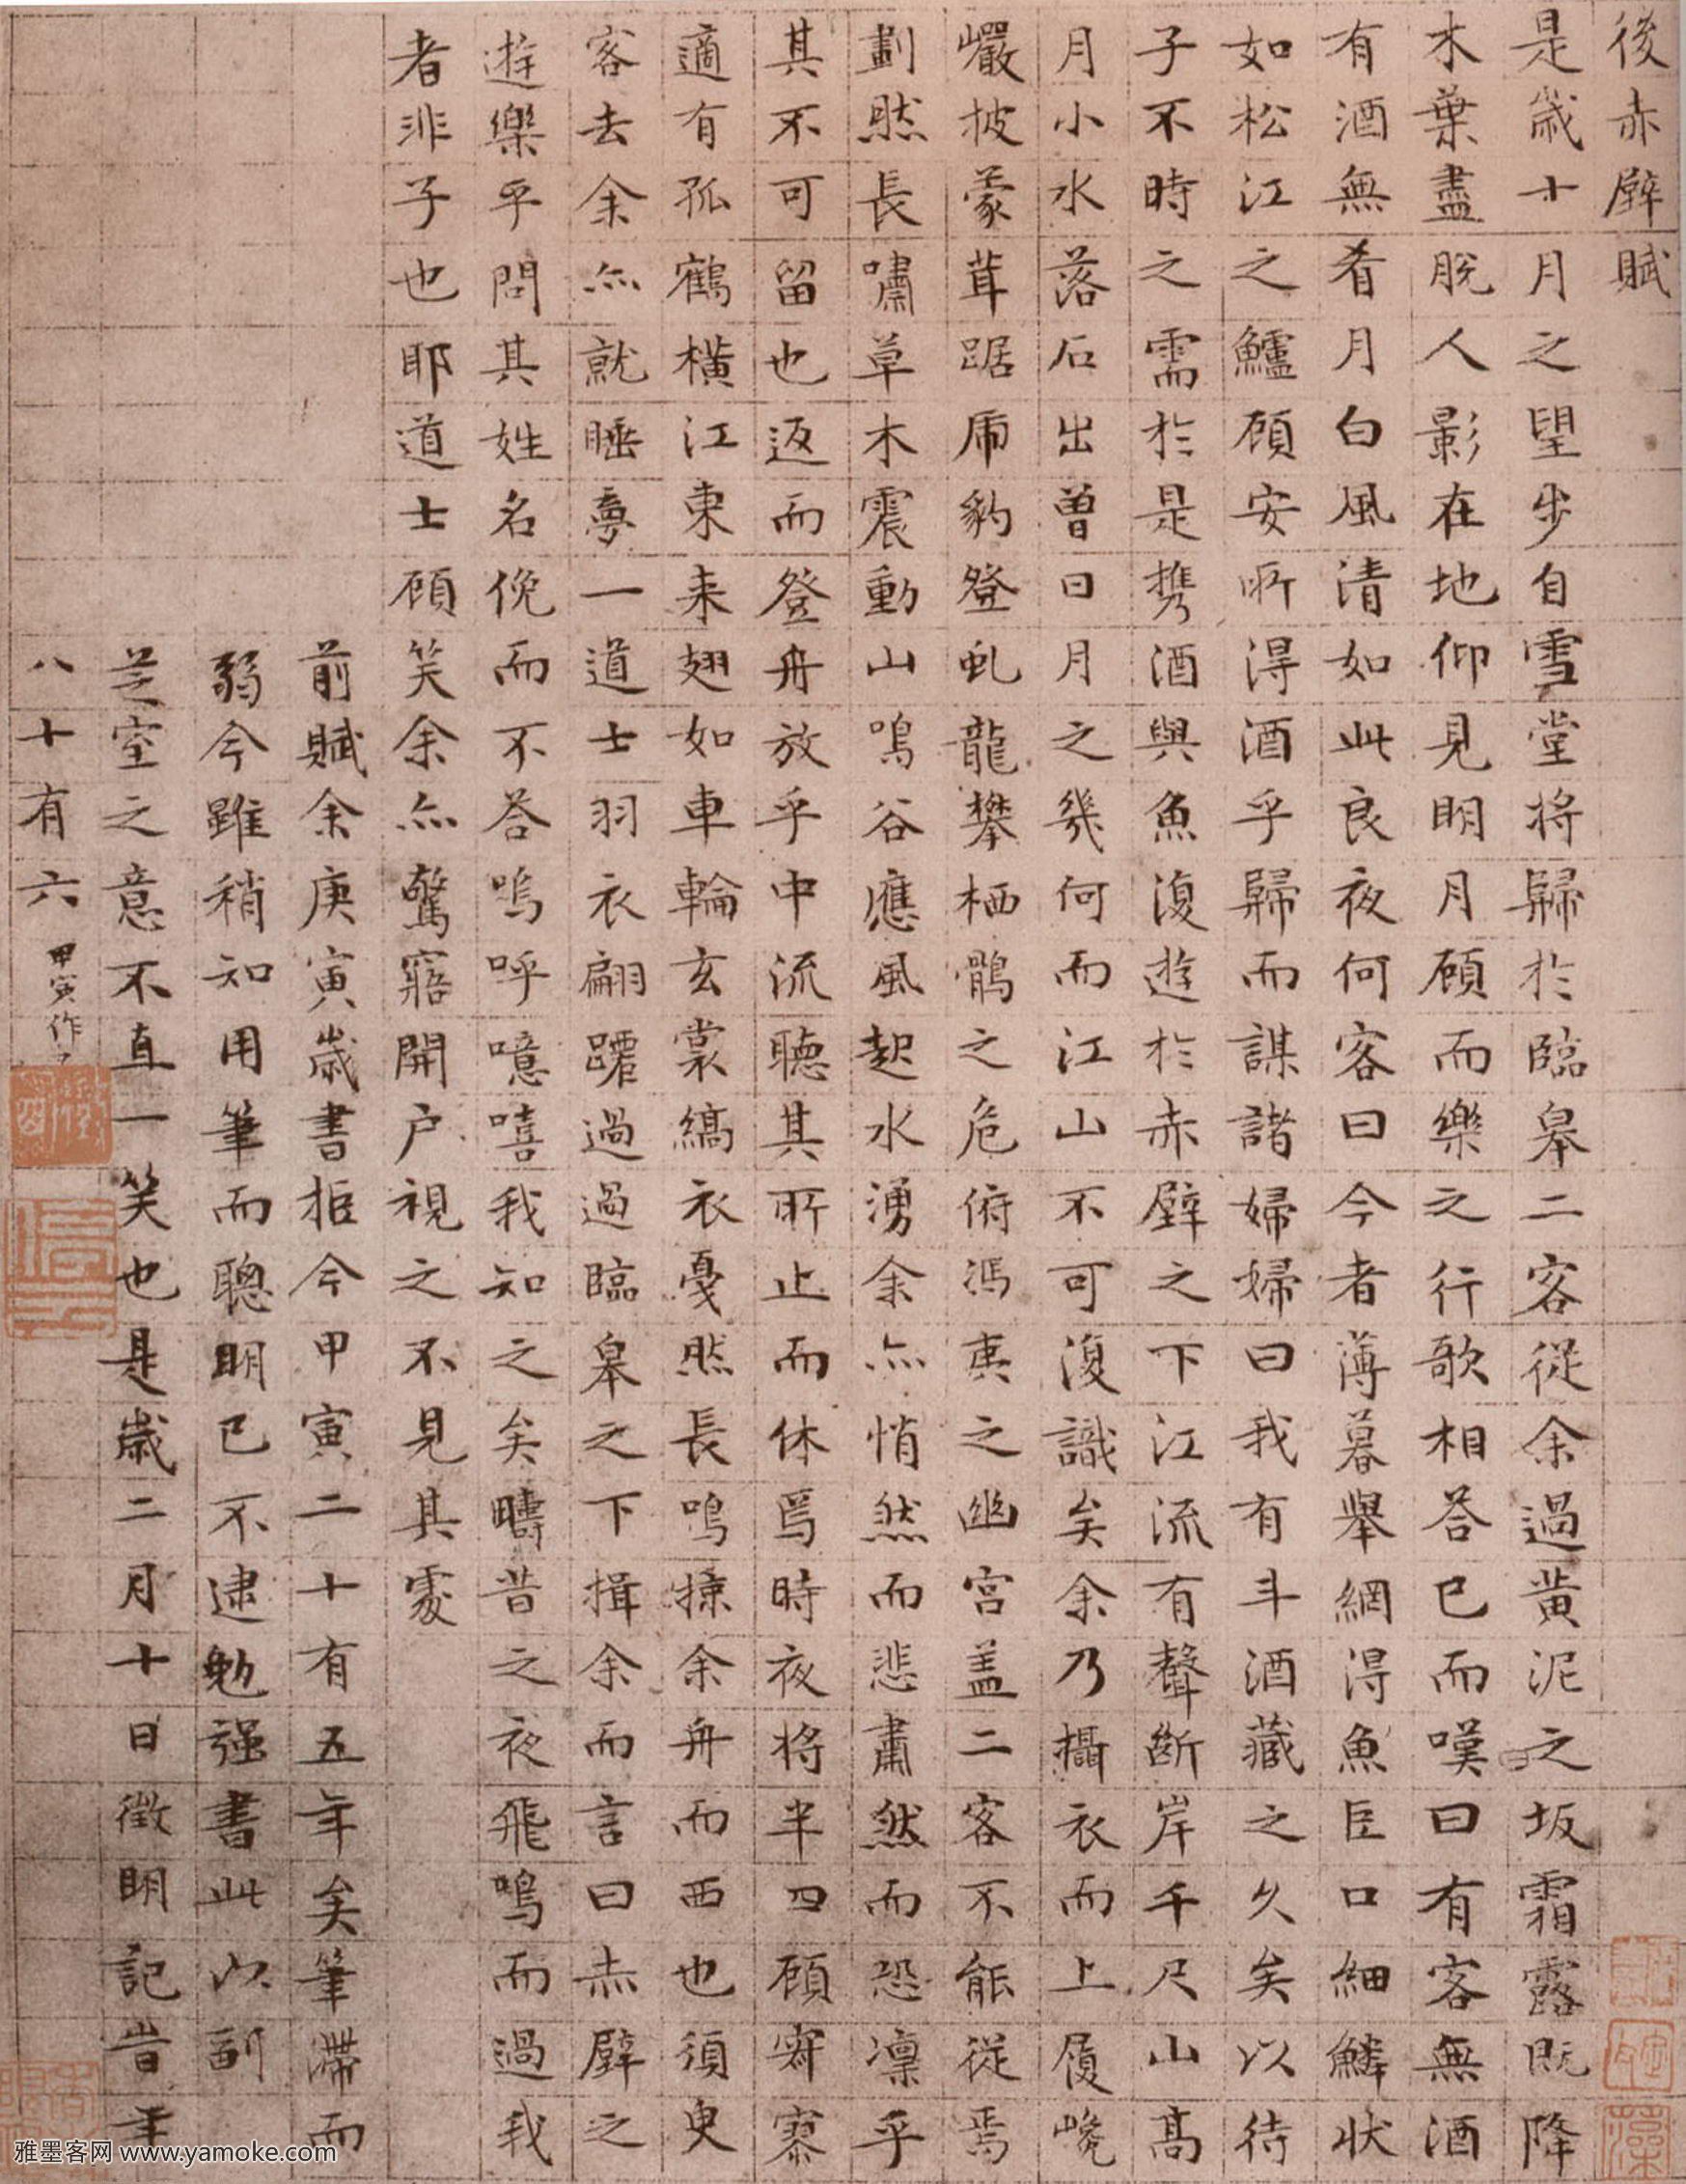 後赤壁賦
是歲十月之望步自雪堂將歸於臨皋二客從余過黃泥之坂霜露既降
木葉盡脫人影在地仰見明月顧而樂之行歌相答已而嘆曰有客無酒
有酒無肴月白風清如此良夜何客曰今者薄暮舉網得魚巨口細鱗狀
如松江之鱸顧安所得酒乎歸而謀諸婦婦曰我有斗酒藏之久矣以待
子不時之需於是携酒與魚復遊於赤壁之下江流有聲斷岸千尺山高
月小水落石出曾日月之幾何而江山不可復識矣余乃攝衣而上履巉
巖披蒙茸踞虎豹登虬龍攀栖鶻之危俯馮夷之幽宮盖二客不能從焉
劃然長嘯草木震動山鳴谷應風起水湧余亦悄然而悲肅然而恐凛乎
其不可留也返而登舟放乎中流聽其所止而休焉時夜將半四顧寂寥
適有孤鶴橫江東来翅如車輪玄裳縞衣戛然長鳴掠余舟而西也須臾
客去余亦就睡夢一道士羽衣翩躚過過臨皋之下揖余而言曰赤壁之
遊樂乎問其姓名俛而不答嗚呼噫嘻我知之矣疇昔之夜飛鳴而過我
者非子也耶道士顧笑余亦驚寤開户視之不見其處
前賦余庚寅歲書拒今甲寅二十有五年矣筆滯而
弱今雖稍知用筆而聰明已不逮勉强書此以副
芝室之意不直一笑也是歲二月十日徵明記旹年
八十有六
甲寅作
雅墨客网 www.yamoke.com